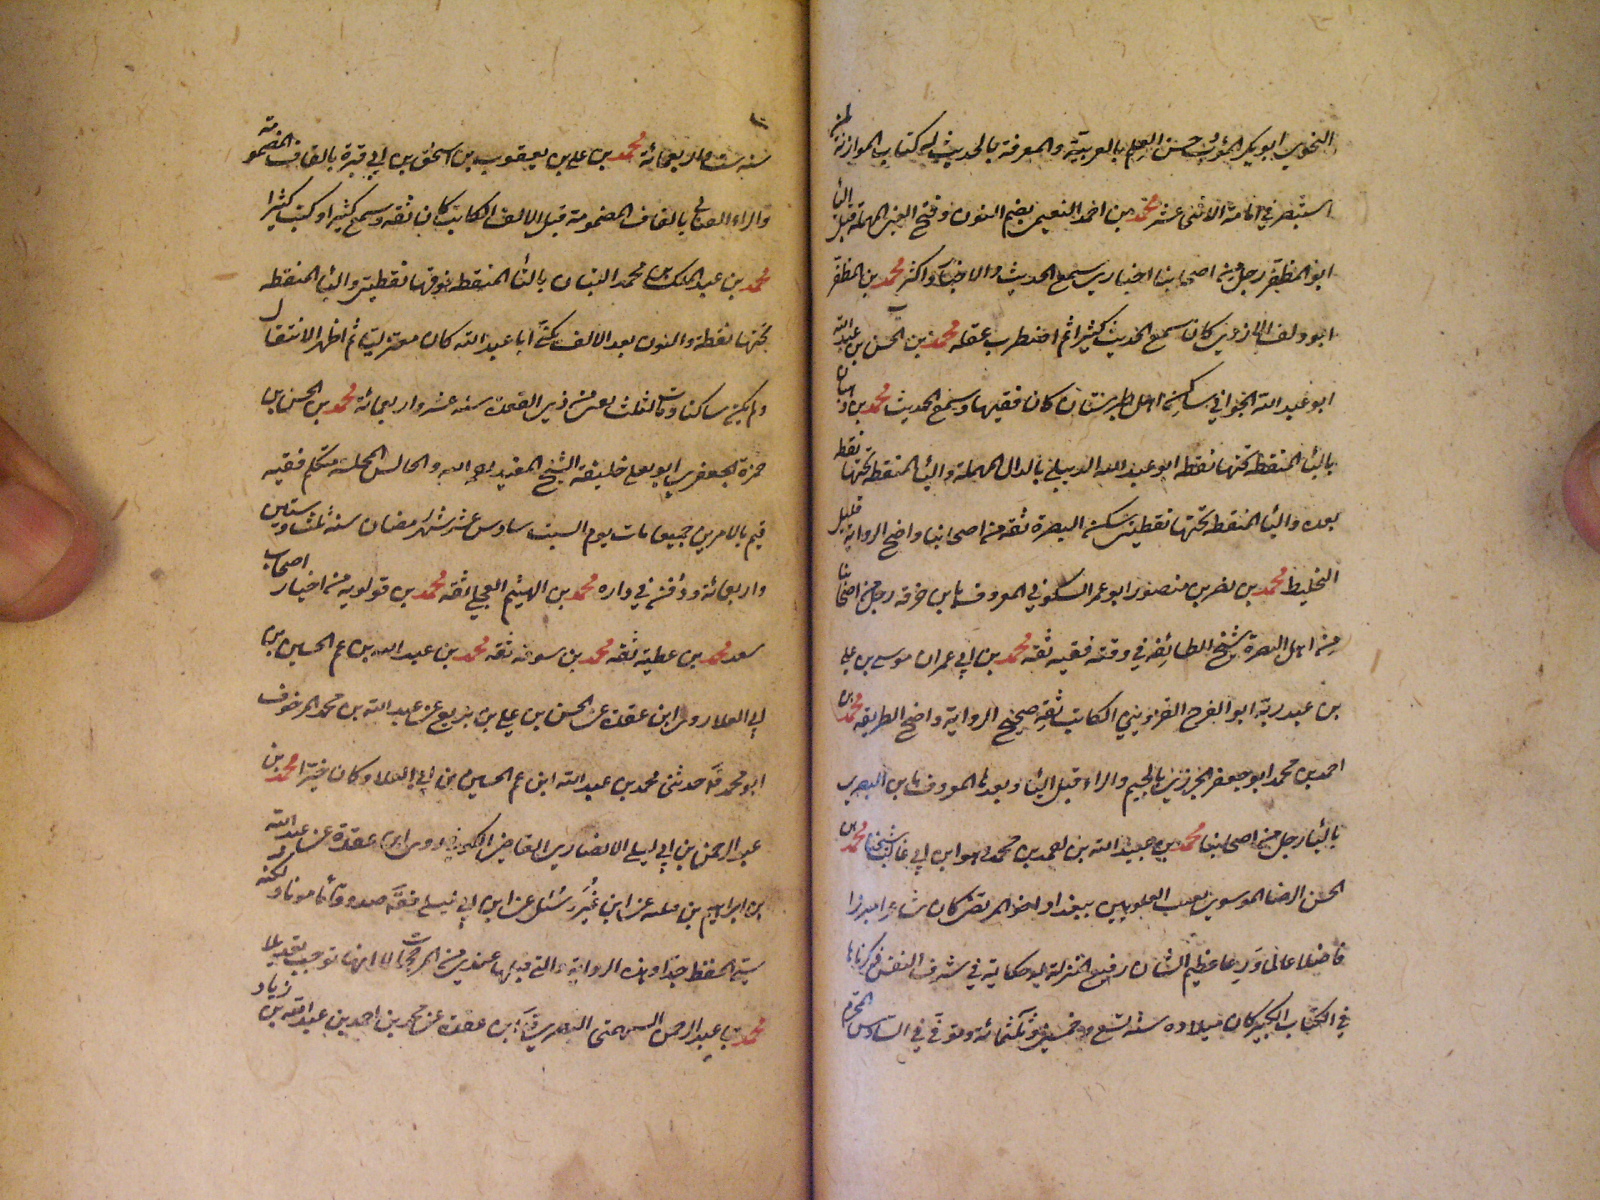 النحوي ابو بكر المؤدب حسن العلم بالعربية والمعرفة بالحديث له كتاب الموازنة لمن
استبصر في امامة الاثنى عشر محمد بن احمد النعيمي بضم النون وفتح العين المهملة قبل اليا
ابو المظفر رجل من اصحابنا اخباري سمع الحديث والاخبار واكثر محمد بن المظفر
ابو دلف الازدي كان سمع الحديث كثيرا ثم اضطرب عقله محمد بن الحسن بن عبد الله
ابو عبد الله الجواني ساكن امل طبرستان كان فقيها وسمع الحديث محمد بن وهبان
بالبا المنقطة تحتها نقطة ابو عبد الله الدبيلي بالدال المهملة والبا المنقطة تحتها نقطة
بعده واليا المنقطة تحتها نقطتين سكن البصرة ثقة من اصحابنا واضح الرواية قليل
التخليط محمد بن نصر بن منصور ابو عمر السكوني المعروف بابن خرقه رجل من اصحابنا
من اهل البصرة شيخ الطائفة في وقته فقيه ثقة محمد بن ابي عمران موسى بن علي
بن عبدربه ابو الفرج القزويني الكاتب ثقة صحيح الرواية واضح الطريقة محمد بن
احمد بن محمد ابو جعفر الجرزي بالجيم والراء قبل اليا وبعدها المعروف بابن البصري
باليا رجل من اصحابنا محمد بن عبيد الله بن احمد بن محمد وهو ابن ابي غالب شيخنا محمد بن
الحسن الرضا الموسوي نقيب العلويين ببغداد اخو المرتضى كان شاعرا مبرزا
فاضلا عالما ورعا عظيم الشان رفيع المنزلة له حكاية في شرف النفس ذكرناها
في الكتاب الكبير كان ميلاده سنة تسع وخمسين وثلثمائة وتوفي في السادس المحرم
سنه ست واربعمائة محمد بن علي بن يعقوب بن اسحق بن ابي قرة بالقاف المضمومة
والراء القنائي بالقاف المضمومة قبل الالف الكاتب كان ثقه وسمع كثيرا وكتب كثيرا
محمد بن عبد الملك بن محمد التبان بالتا المنقطة فوقها نقطتين والبا المنقطة
تحتها نقطة والنون بعد الالف يكنى ابا عبد الله كان معتزليا ثم اظهر الانتقال
ولم يكن ساكنا ومات لثلث بقين من ذي القعدة سنة عشر واربعمائة محمد بن الحسن بن
حمزة الجعفري ابو يعلى خليفة الشيخ المفيد رحمه الله والجالس مجلسه متكلم فقيه
قيم بالامرين جميعا مات يوم السبت سادس عشر شهر رمضان سنة ثلث وستين
واربعمائة ودفن في داره محمد بن الهيثم العجلي ثقة محمد بن قولويه من اخيار اصحاب
سعد محمد بن عطية ثقه محمد بن سوقه ثقه محمد بن عبد الله بن عم الحسين بن
ابي العلا روى ابن عقدة عن الحسن بن علي بن بزيع عن عبد الله بن محمد المزخرف
ابو محمد قال حدثنى محمد بن عبد الله ابن عم الحسين بن ابي العلا وكان خيرا محمد بن
عبد الرحمن بن ابي ليلى الانصاري القاضي الكوفي روى ابن عقدة عن عبد الله
بن ابراهيم بن قتيبه عن ابن نمير وسئل عن ابن ابي ليلى فقال صدوقا مامونا ولكنه
سيئ الحفظ جدا وهذه الرواية والتي قبلها عندي من المرجحات لا انها توجب تعديلا
محمد بن عبد الرحمن السهمى البصري قال ابن عقدة عن محمد بن احمد بن عبد الله بن زياد